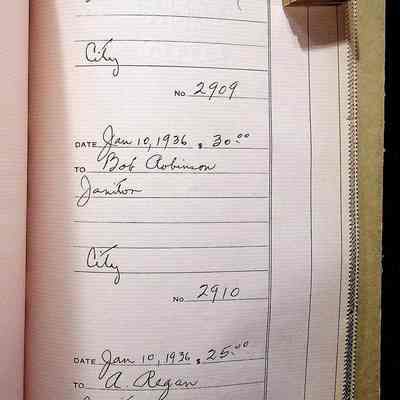 City
No 2909
DATE Jan 10, 1936 $ 30.00
TO Bob Robinson
Janitor
City
No 2910
DATE Jan 10, 1936 $ 25.00
TO A. Regan